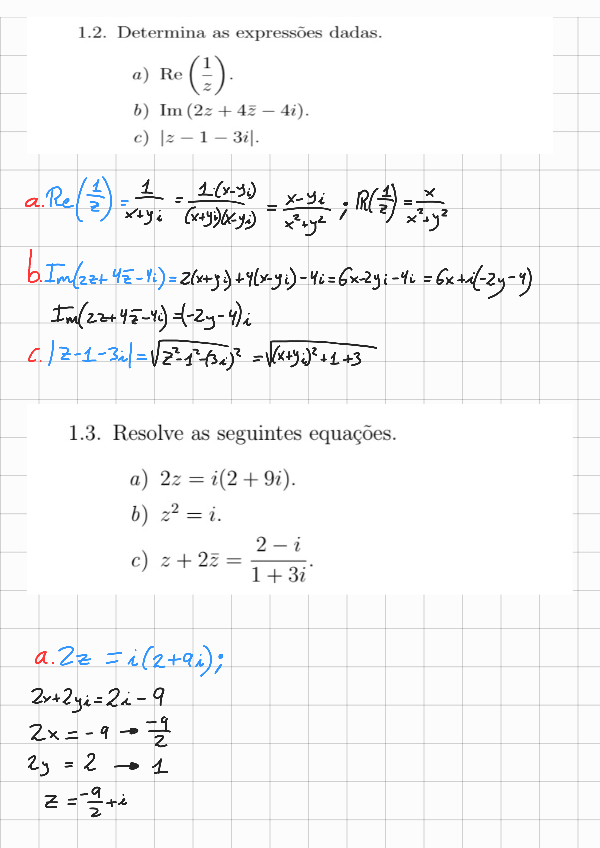 1.2. Determina as expressões dadas.
a) Re(1/z).
b) Im(2z + 4z̄ − 4i).
c) |z − 1 − 3i|.
a. Re(1/z) = 1/(x+yi) = 1·(x−yi)/((x+yi)(x−yi)) = (x−yi)/(x²+y²) ; R(1/z) = x/(x²+y²)
b. Im(2z+4z̄−4i) = 2(x+yi)+4(x−yi)−4i = 6x−2yi−4i = 6x+i(−2y−4)
Im(2z+4z̄−4i) = (−2y−4)i
c. |z−1−3i| = √(z²−1²−(3i)²) = √((x+yi)²+1+3)
1.3. Resolve as seguintes equações.
a) 2z = i(2 + 9i).
b) z² = i.
c) z + 2z̄ = (2 − i)/(1 + 3i).
a. 2z = i(2+9i);
2x+2yi = 2i − 9
2x = −9 → −9/2
2y = 2 → 1
z = −9/2 + i